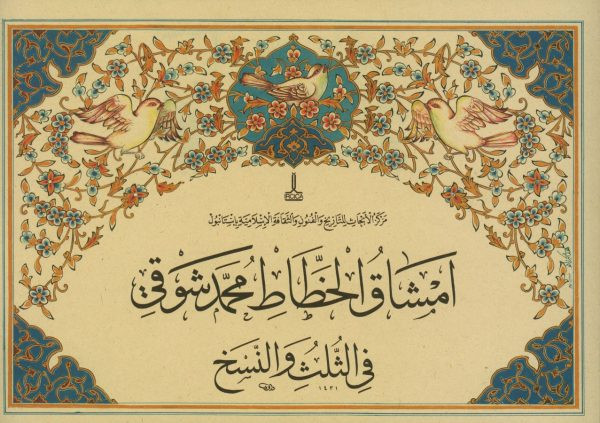 مركز الأبحاث للتاريخ والفنون والثقافة الإسلامية باستانبول
امشاق الخطاط محمد شوقي
في الثلث والنسخ
١٤٣١